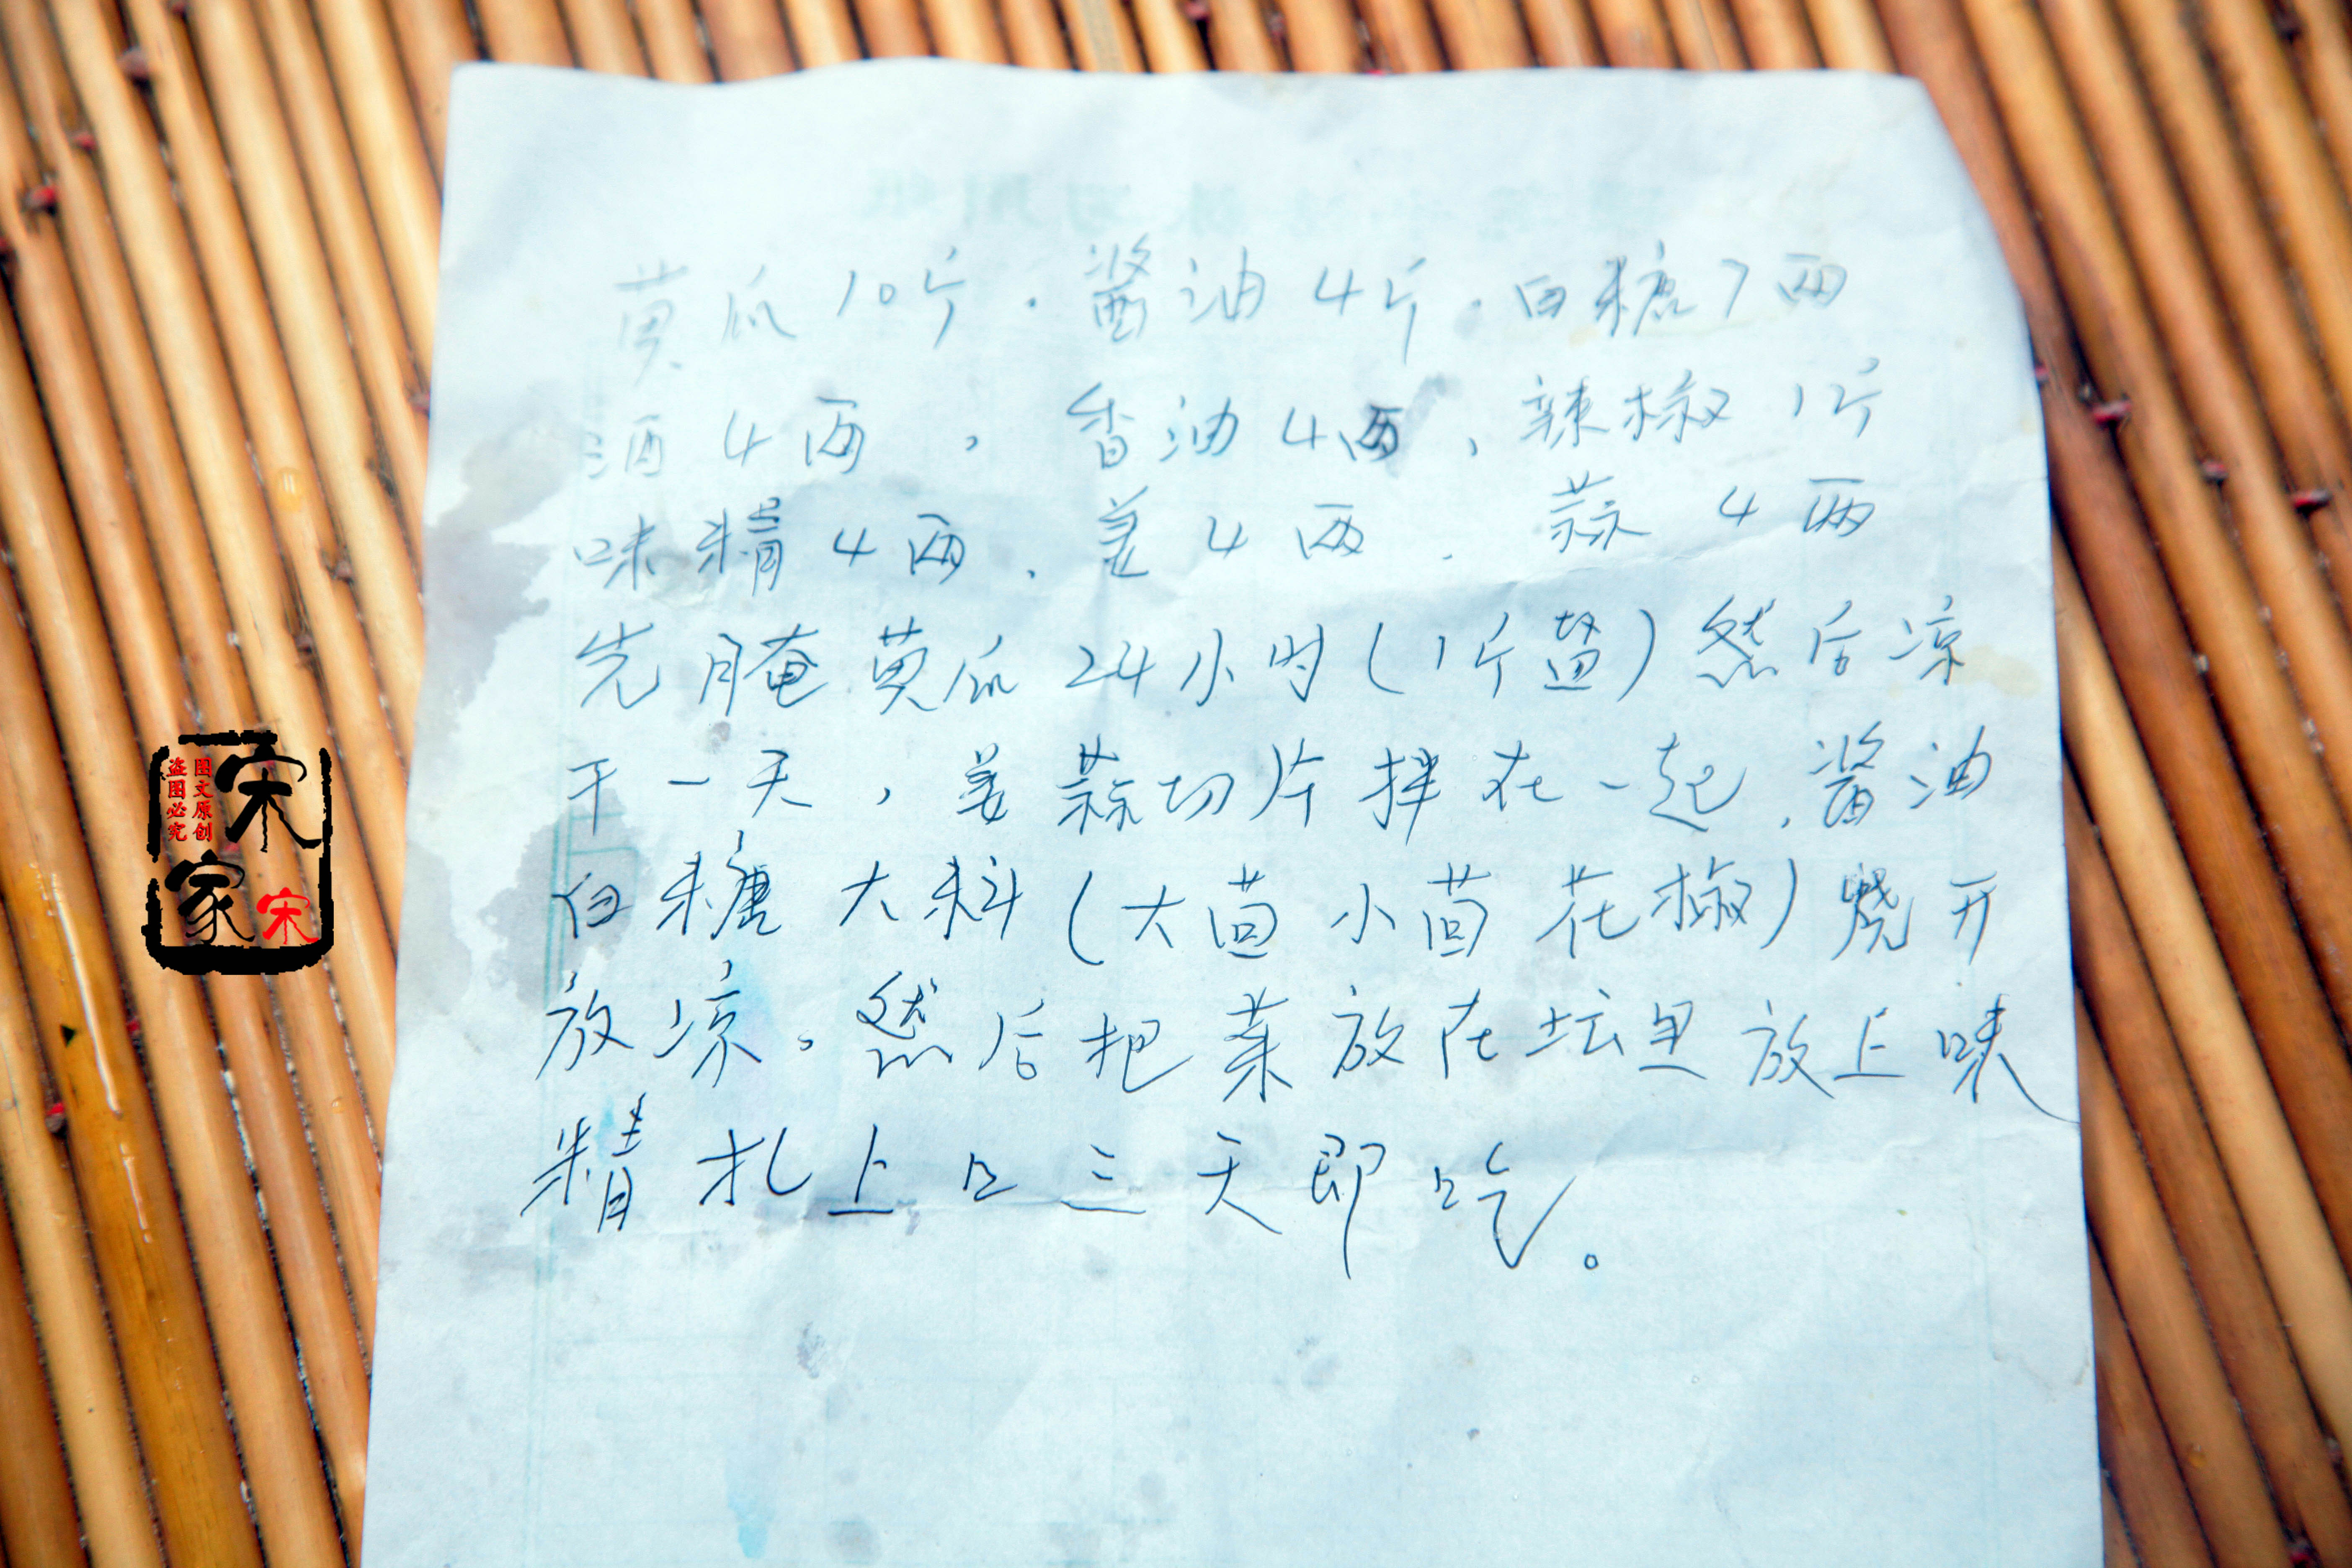 黄瓜10斤．酱油4斤．白糖7两
酒4两，香油4两，辣椒1斤
味精4两．姜4两．蒜4两
先腌黄瓜24小时（1斤盐）然后凉
干一天，姜蒜切片拌在一起，酱油
白糖大料（大茴小茴花椒）烧开
放凉。然后把菜放在坛里放上味
精扎上口三天即吃。
宋
家
图文原创
盗图必究
宋